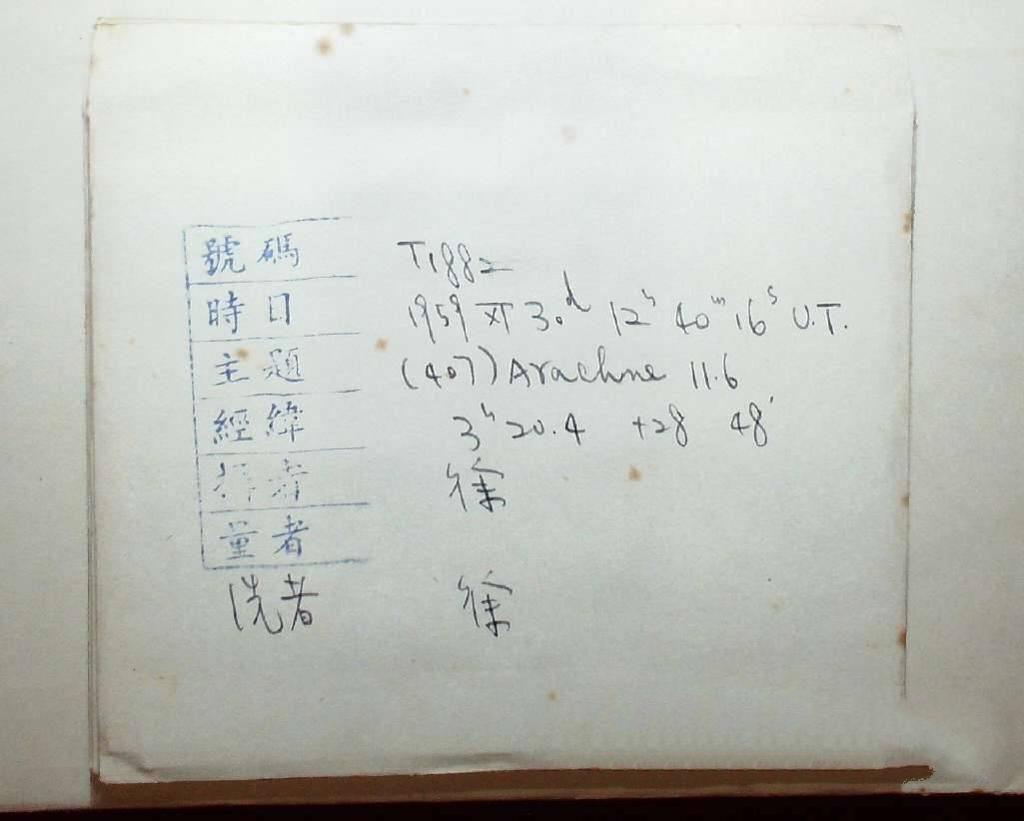 號碼 T1882
時日 1959 XI 30d 12h 40m 16s U.T.
主題 (407) Arachne 11.6
經緯 3h 20.4 +28 48'
者 徐
量者
洗者 徐